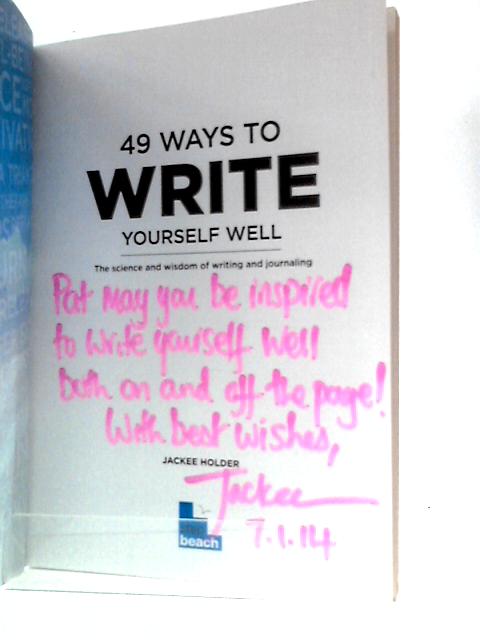 49 WAYS TO
WRITE
YOURSELF WELL
The science and wisdom of writing and journaling
Pat may you be inspired
to write yourself well
both on and off the page!
With best wishes,
JACKEE HOLDER
Jackee
7.1.14
step
beach